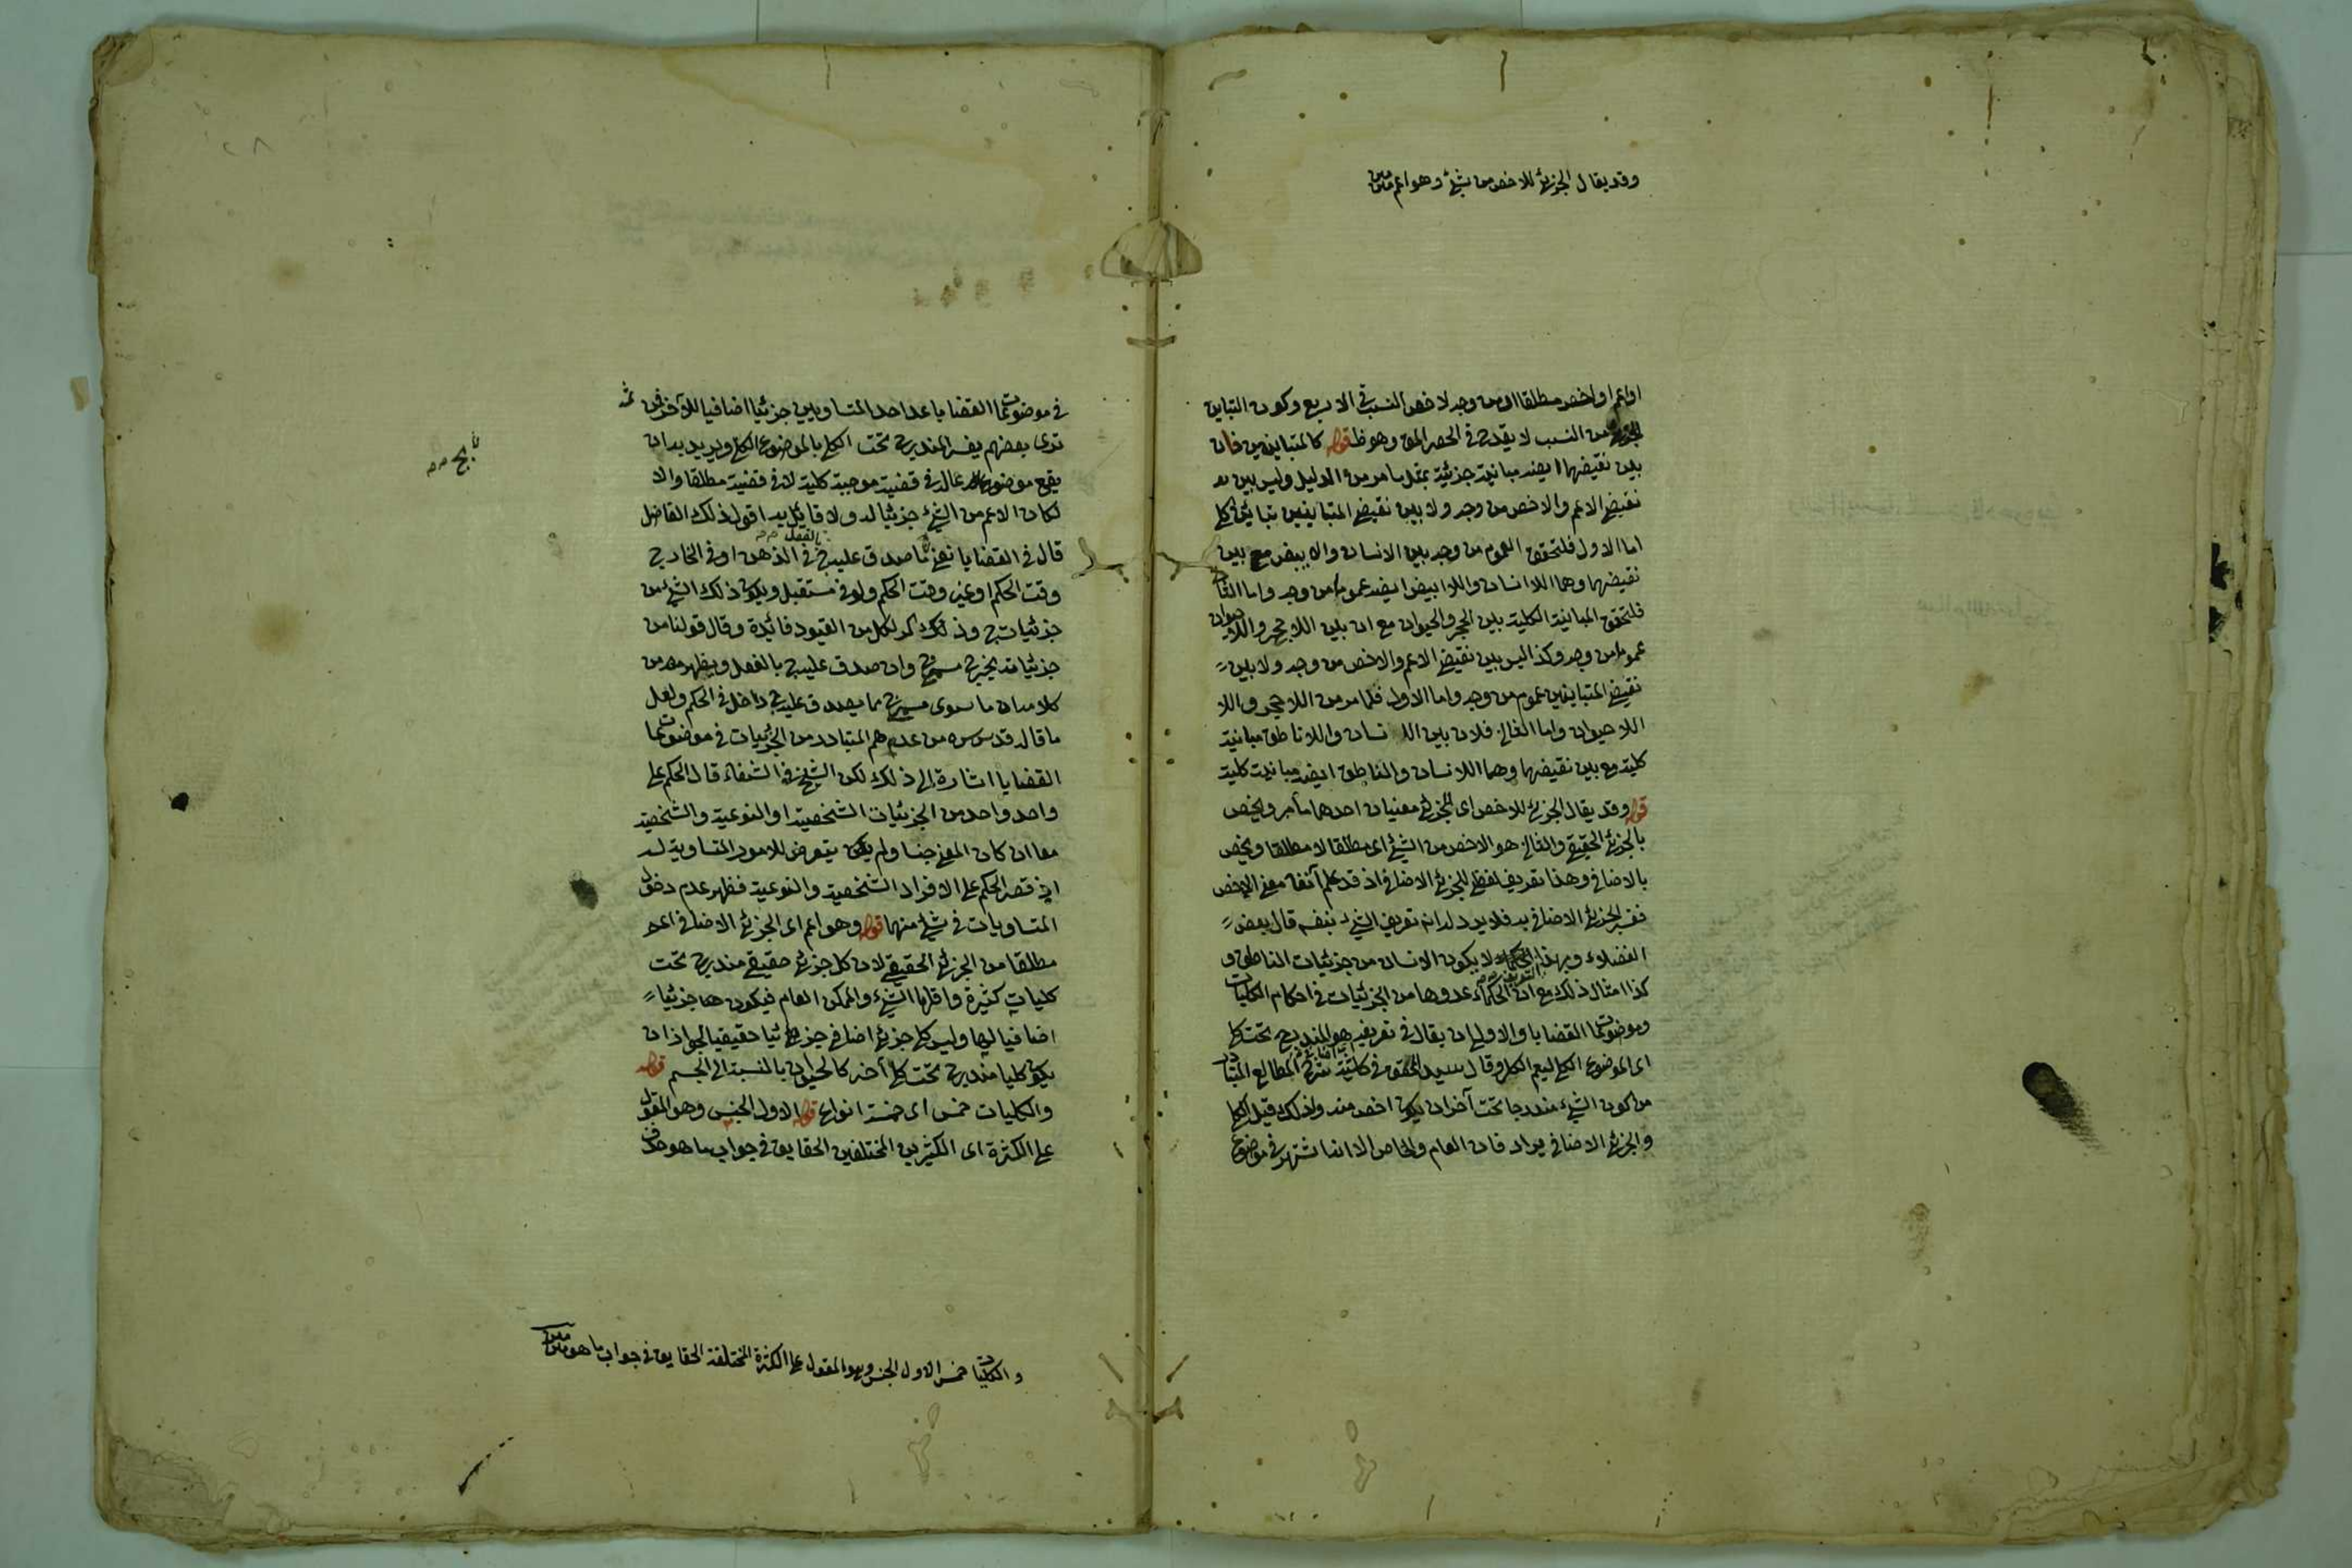 وقد يقال الجزئي للاخص من شئ وهو اعم متن
او اعم او اخص مطلقا او من وجه لا خص النسب في الاربع وكون التباين
من النسب لا يقدح في الحصر المق وهو ظ قوله كالمتباينين فان
بين نقيضهما ايضا مباينة جزئية بمثل ما مر من الدليل وليس بين
نقيض الاعم والاخص من وجه ولا بين نقيض المتباينين تباين كل
اما الاول فلتحقق العموم من وجه بين الانسان والابيض مع بين
نقيضهما وهما اللاانسان واللاابيض ايضا عموما من وجه واما الثا
فلتحقق المباينة الكلية بين الحجر والحيوان مع ان بين اللاحجر واللاحيوان
عموما من وجه وكذا ليس بين نقيض الاعم والاخص من وجه ولا بين
نقيض المتباينين عموم من وجه واما الاول فلما مر من اللاحجر واللا
اللاحيوان واما الثاني فلان بين اللانسان واللاناطق مباينة
كلية مع بين نقيضهما وهما اللانسان والناطق ايضا مباينة كلية
قوله وقد يقال الجزئي للاخص اى للجزئي معنيان احدهما ما مر ويخص
بالجزئي الحقيقي والثاني هو الاخص من الشئ اى مطلقا لا مطلقا ويخص
بالاضافي وهذا تعريف لفظي للجزئي الاضافي اذ قد علم آنفا معنى الاخص
ففسر الجزئي الاضافي به فلا يرد له انه تعريف الشئ بنفسه قال بعض
الفضلاء وبهذا التعريف لا يكون الانسان من جزئيات الناطق و
كذا امثال ذلك مع ان الحكماء عدوها من الجزئيات في احكام الكليات
وموضوعات القضايا والاولى ان يقال في تعريفه هو المندرج تحت كل
اى الموضوع الكلي ليعم الكل وقال سيد المحقق في حاشية شرح المطالع المتبادر
من كون الشئ مندرجا تحت آخر ان يكون اخص منه ولذلك قيل الكلي
والجزئي الاضافي يرادفان العام والخاص الا انما اشتهر في موضوع
في موضوعات القضايا عد احد المتساويين جزئيا اضافيا للآخر فمن ثمه
ترى بعضهم يفسر المندرج تحت الكلي بالموضوع الكلي ويريد به ان
يقع موضوعا له في قضية موجبة كلية لا في قضية مطلقا والا
لكان الاعم من الشئ جزئيا له ولا قائل به اقول ذلك الفاضل
بالفعل
قال في القضايا نعني ما صدق عليه ج في الذهن او في الخارج
وقت الحكم او غير وقت الحكم ولو في مستقبل ويكون ذلك الشئ من
جزئيات ج وذلك كر لكل من القيود فائدة وقال قولنا من
جزئياته يخرج مسمى ج وان صدق عليه ج بالفعل ويظهر من
كلامه ان ما سوى مسمى ج مما يصدق عليه ج داخل في الحكم ولعل
ما قاله قدس سره من عدهم المتبادر من الجزئيات في موضوعات
القضايا اشارة الى ذلك لكن الشيخ في الشفاء قال الحكم على
واحد واحد من الجزئيات الشخصية او النوعية والشخصية
معا ان كان المعنى جنسا ولم يكن يتعرض للامور المتساوية له
اي قصر الحكم على الافراد الشخصية والنوعية فظهر عدم دخول
المتساويات في شئ منهما قوله وهو اعم اى الجزئي الاضافي اعم
مطلقا من الجزئي الحقيقي لان كل جزئي حقيقي مندرج تحت
كليات كثيرة واقلها الشئ والممكن العام فيكون هنا جزئيا
اضافيا لها وليس كل جزئي اضافي جزئيا حقيقيا لجواز ان
يكون كليا مندرجا تحت كلي آخر كالحيوان بالنسبة الى الجسم قوله
والكليات خمس اى خمسة انواع قوله الاول الجنس وهو المقول
على الكثرة اى الكثيرين المختلفين الحقايق في جواب ما هو
والكليات خمس الاول الجنس وهو المقول على الكثرة المختلفة الحقايق في جواب ما هو متن